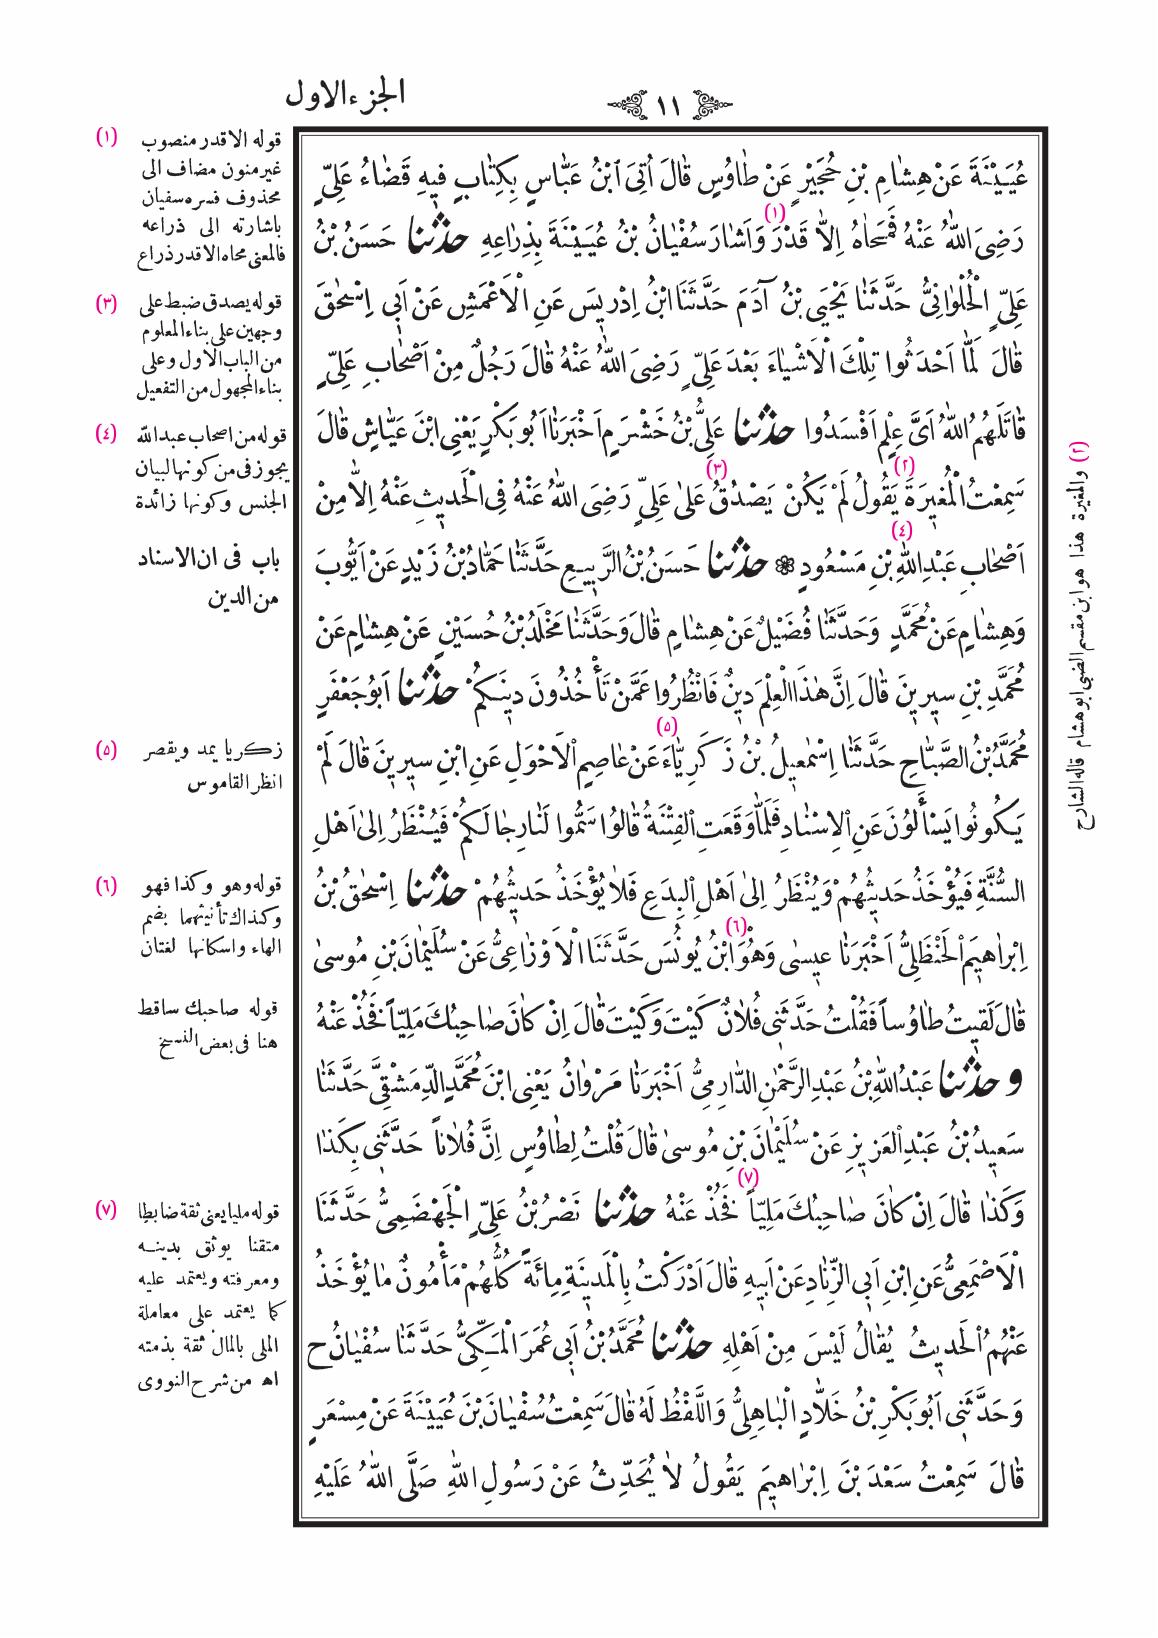 الجزء الاول
١١
عُيَيْنَةَ عَنْ هِشَامِ بْنِ حُجَيْرٍ عَنْ طَاوُسٍ قَالَ اُتِىَ ابْنُ عَبَّاسٍ بِكِتَابٍ فِيهِ قَضَاءُ عَلِىٍّ
رَضِىَ اللّٰهُ عَنْهُ فَمَحَاهُ اِلاَّ قَدْرَ (١) وَاَشَارَ سُفْيَانُ بْنُ عُيَيْنَةَ بِذِرَاعِهِ حدثنا حَسَنُ بْنُ
عَلِىٍّ الْحُلْوَانِىُّ حَدَّثَنَا يَحْيَى بْنُ آدَمَ حَدَّثَنَا ابْنُ اِدْرِيسَ عَنِ الْاَعْمَشِ عَنْ اَبِى اِسْحٰقَ
قَالَ لَمَّا اَحْدَثُوا تِلْكَ الْاَشْيَاءَ بَعْدَ عَلِىٍّ رَضِىَ اللّٰهُ عَنْهُ قَالَ رَجُلٌ مِنْ اَصْحَابِ عَلِىٍّ
قَاتَلَهُمُ اللّٰهُ اَىَّ عِلْمٍ اَفْسَدُوا حدثنا عَلِىُّ بْنُ خَشْرَمٍ اَخْبَرَنَا اَبُو بَكْرٍ يَعْنِى ابْنَ عَيَّاشٍ قَالَ
سَمِعْتُ الْمُغِيرَةَ (٢) يَقُولُ لَمْ يَكُنْ يَصْدُقُ (٣) عَلىٰ عَلِىٍّ رَضِىَ اللّٰهُ عَنْهُ فِى الْحَدِيثِ عَنْهُ اِلاَّ مِنْ
اَصْحَابِ عَبْدِ اللّٰهِ (٤) بْنِ مَسْعُودٍ ❁ حدثنا حَسَنُ بْنُ الرَّبِيعِ حَدَّثَنَا حَمَّادُ بْنُ زَيْدٍ عَنْ اَيُّوبَ
وَهِشَامٍ عَنْ مُحَمَّدٍ وَحَدَّثَنَا فُضَيْلٌ عَنْ هِشَامٍ قَالَ وَحَدَّثَنَا مَخْلَدُ بْنُ حُسَيْنٍ عَنْ هِشَامٍ عَنْ
مُحَمَّدِ بْنِ سِيرِينَ قَالَ اِنَّ هٰذَا الْعِلْمَ دِينٌ فَانْظُرُوا عَمَّنْ تَأْخُذُونَ دِينَكُمْ حدثنا اَبُو جَعْفَرٍ
مُحَمَّدُ بْنُ الصَّبَّاحِ حَدَّثَنَا اِسْمٰعِيلُ بْنُ زَكَرِيَّاءَ (٥) عَنْ عَاصِمٍ الْاَحْوَلِ عَنِ ابْنِ سِيرِينَ قَالَ لَمْ
يَكُونُوا يَسْأَلُونَ عَنِ الْاِسْنَادِ فَلَمَّا وَقَعَتِ الْفِتْنَةُ قَالُوا سَمُّوا لَنَا رِجَالَكُمْ فَيُنْظَرُ اِلىٰ اَهْلِ
السُّنَّةِ فَيُؤْخَذُ حَدِيثُهُمْ وَيُنْظَرُ اِلىٰ اَهْلِ الْبِدَعِ فَلاَ يُؤْخَذُ حَدِيثُهُمْ حدثنا اِسْحٰقُ بْنُ
اِبْرَاهِيمَ الْحَنْظَلِىُّ اَخْبَرَنَا عِيسٰى وَهُوَ (٦) ابْنُ يُونُسَ حَدَّثَنَا الْاَوْزَاعِىُّ عَنْ سُلَيْمَانَ بْنِ مُوسىٰ
قَالَ لَقِيتُ طَاوُساً فَقُلْتُ حَدَّثَنِى فُلاَنٌ كَيْتَ وَكَيْتَ قَالَ اِنْ كَانَ صَاحِبُكَ مَلِيّاً فَخُذْ عَنْهُ
و حدثنا عَبْدُ اللّٰهِ بْنُ عَبْدِ الرَّحْمٰنِ الدَّارِمِىُّ اَخْبَرَنَا مَرْوَانُ يَعْنِى ابْنَ مُحَمَّدٍ الدِّمَشْقِىَّ حَدَّثَنَا
سَعِيدُ بْنُ عَبْدِ الْعَزِيزِ عَنْ سُلَيْمَانَ بْنِ مُوسىٰ قَالَ قُلْتُ لِطَاوُسٍ اِنَّ فُلاَناً حَدَّثَنِى بِكَذَا
وَكَذَا قَالَ اِنْ كَانَ صَاحِبُكَ مَلِيّاً (٧) فَخُذْ عَنْهُ حدثنا نَصْرُ بْنُ عَلِىٍّ الْجَهْضَمِىُّ حَدَّثَنَا
الْاَصْمَعِىُّ عَنِ ابْنِ اَبِى الزِّنَادِ عَنْ اَبِيهِ قَالَ اَدْرَكْتُ بِالْمَدِينَةِ مِائَةً كُلُّهُمْ مَأْمُونٌ مَا يُؤْخَذُ
عَنْهُمُ الْحَدِيثُ يُقَالُ لَيْسَ مِنْ اَهْلِهِ حدثنا مُحَمَّدُ بْنُ اَبِى عُمَرَ الْمَكِّىُّ حَدَّثَنَا سُفْيَانُ ح
وَحَدَّثَنِى اَبُو بَكْرِ بْنُ خَلاَّدٍ الْبَاهِلِىُّ وَاللَّفْظُ لَهُ قَالَ سَمِعْتُ سُفْيَانَ بْنَ عُيَيْنَةَ عَنْ مِسْعَرٍ
قَالَ سَمِعْتُ سَعْدَ بْنَ اِبْرَاهِيمَ يَقُولُ لاَ يُحَدِّثُ عَنْ رَسُولِ اللّٰهِ صَلَّى اللّٰهُ عَلَيْهِ
(١) قوله الا قدر منصوب
غير منون مضاف الى
محذوف فسره سفيان
باشارته الى ذراعه
فالمعنى محاه الا قدر ذراع
(٣) قوله يصدق ضبط على
وجهين على بناء المعلوم
من الباب الاول وعلى
بناء المجهول من التفعيل
(٤) قوله من اصحاب عبدالله
يجوز فى من كونها لبيان
الجنس وكونها زائدة
باب فى ان الاسناد
من الدين
(٥) زكريا يمد ويقصر
انظر القاموس
(٦) قوله وهو وكذا فهو
وكذاك تأنيثهما بضم
الهاء واسكانها لغتان
قوله صاحبك ساقط
هنا فى بعض النسخ
(٧) قوله مليا يعنى ثقة ضابطا
متقنا يوثق بدينه
ومعرفته ويعتمد عليه
كما يعتمد على معاملة
الملى بالمال ثقة بذمته
اه من شرح النووى
(٢) والمغيرة هذا هو ابن مقسم الضبى ابو هشام قاله الشارح